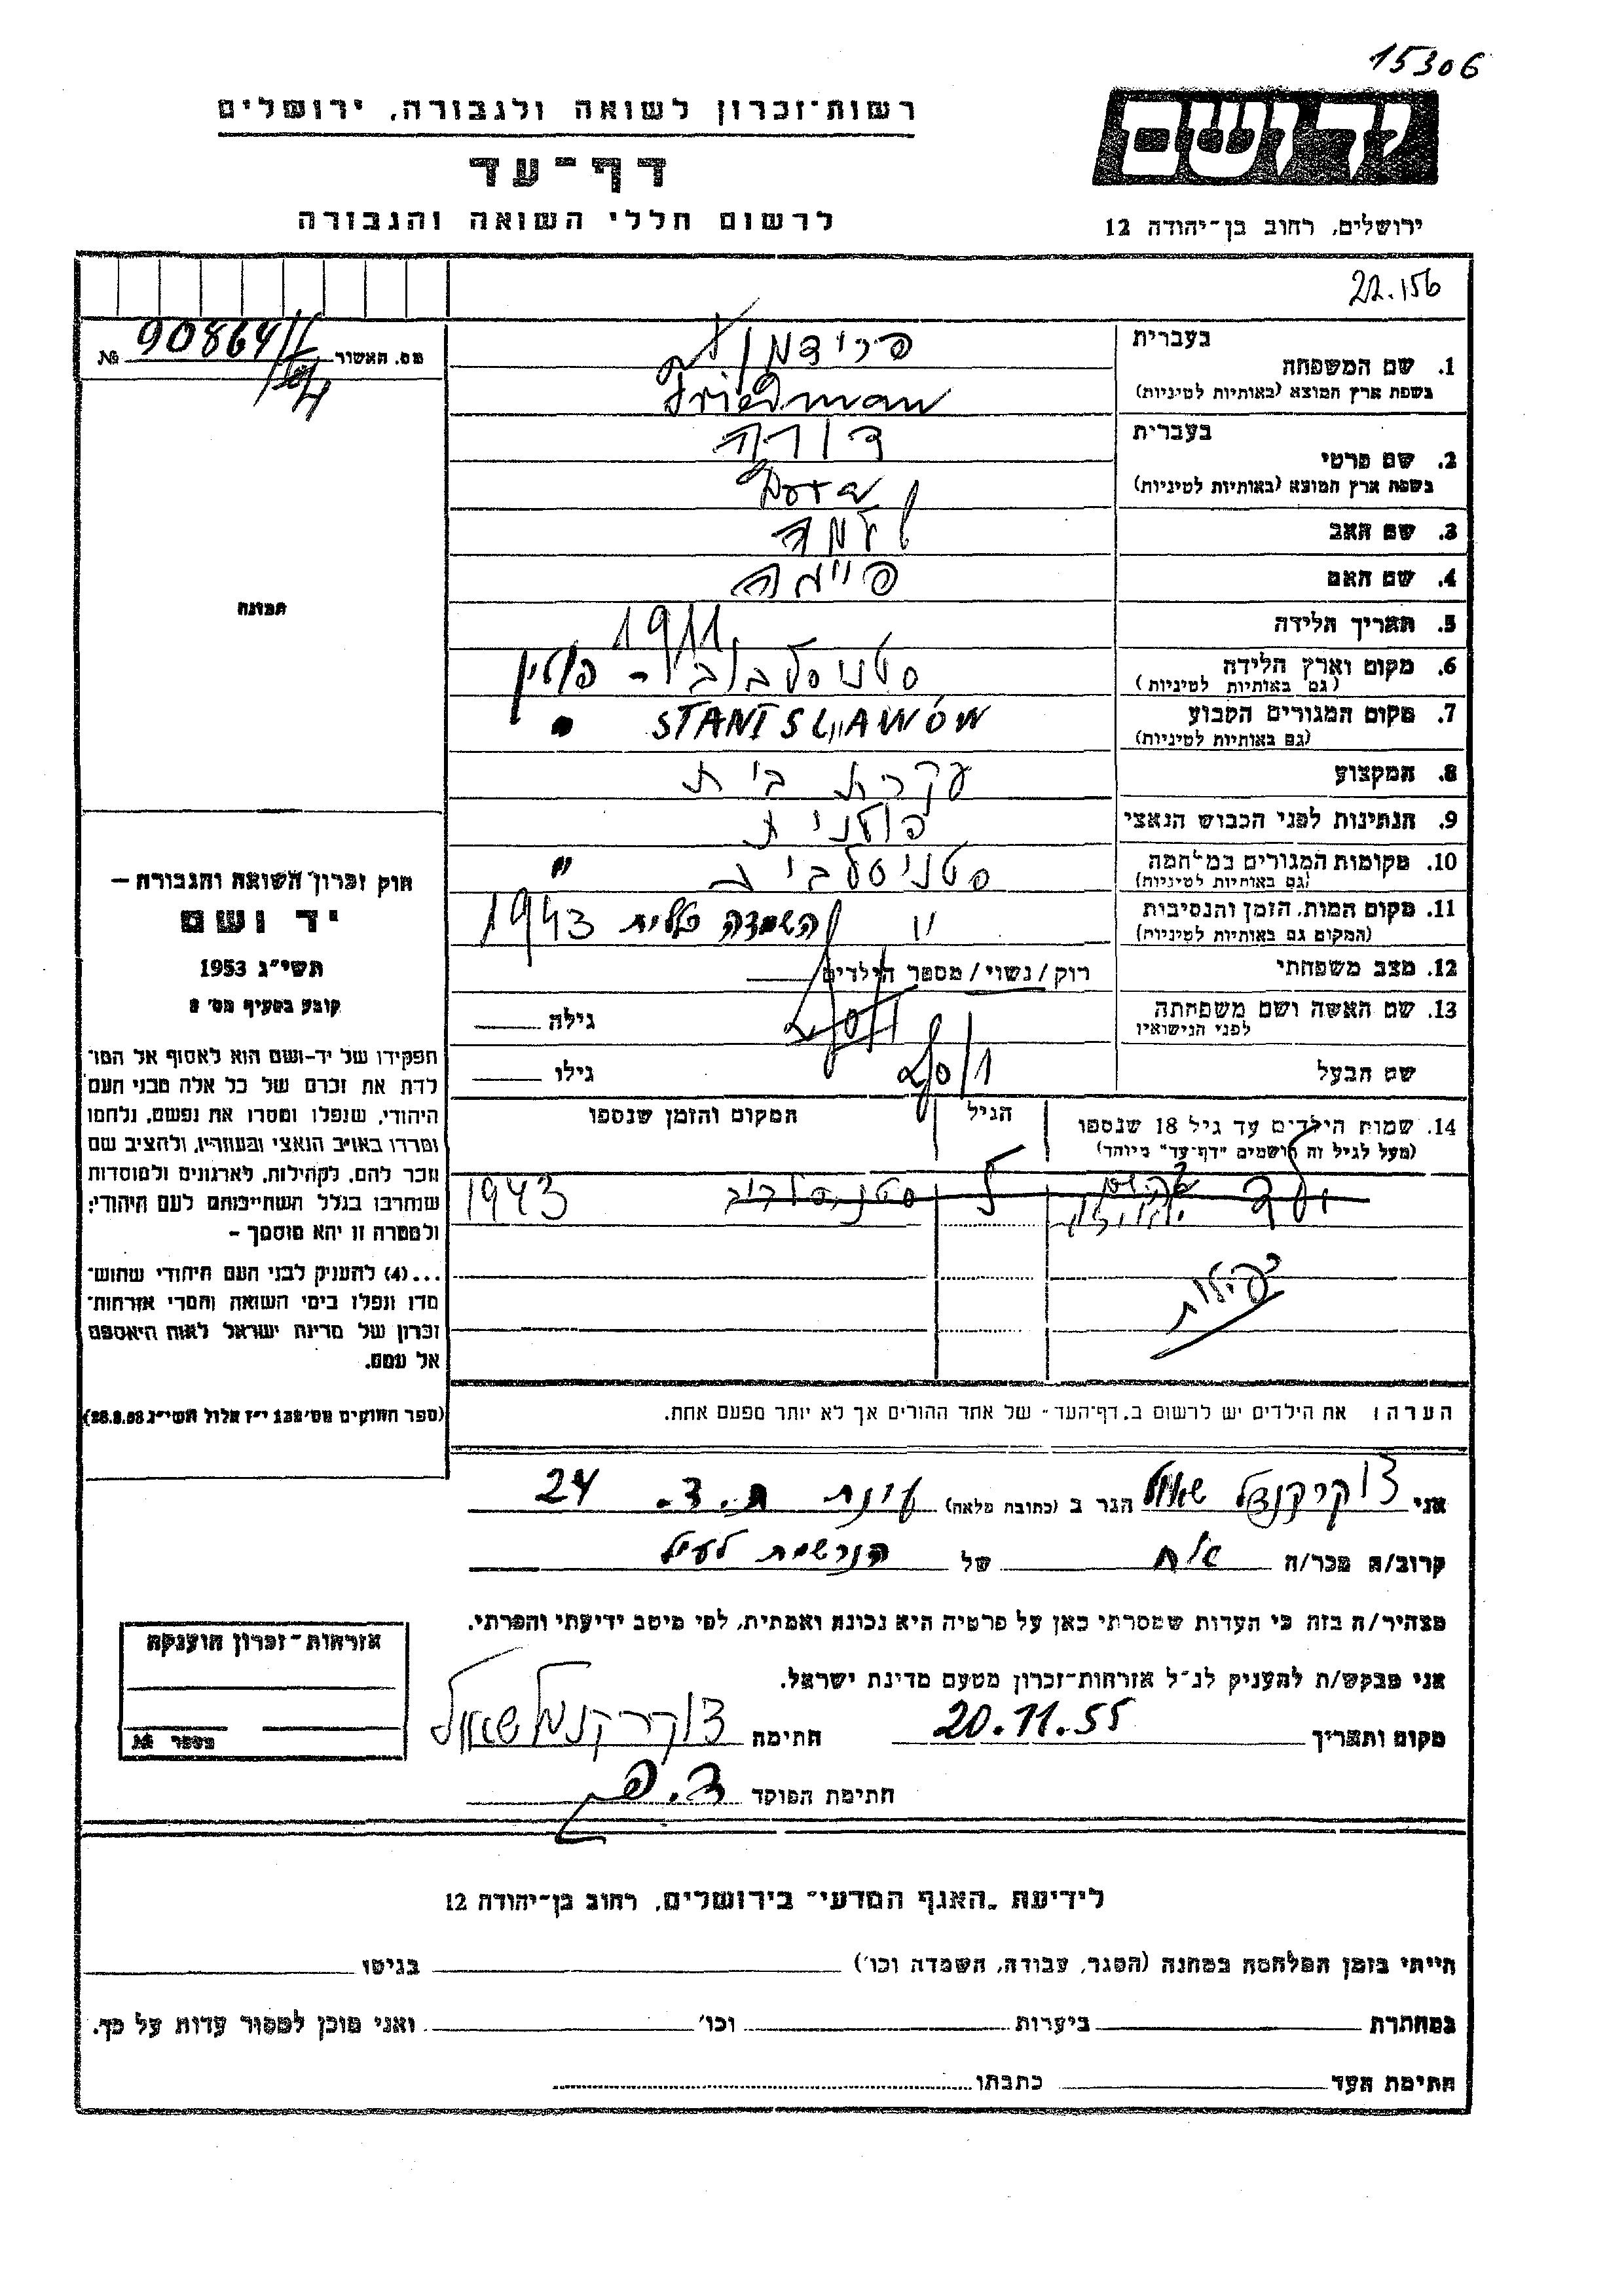 15306
רשות־זכרון לשואה ולגבורה, ירושלים
יד ושם
דף־עד
לרשום חללי השואה והגבורה
ירושלים, רחוב בן־יהודה 12
22.156
מס. האשור 90864 №
בעברית פרידמן
1. שם המשפחה
בשפת ארץ המוצא (באותיות לטיניות) Friedman
בעברית דורה
2. שם פרטי
בשפת ארץ המוצא (באותיות לטיניות) Dora
3. שם האב שלמה
4. שם האם
תמונה
5. תאריך הלידה 1911
6. מקום וארץ הלידה סטניסלבוב - פולין
(גם באותיות לטיניות)
7. מקום המגורים הקבוע STANISŁAWÓW
(גם באותיות לטיניות)
8. המקצוע עקרת בית
9. הנתינות לפני הכבוש הנאצי פולנית
10. מקומות המגורים במלחמה "
(גם באותיות לטיניות)
11. מקום המות, הזמן והנסיבות " השמדה כללית 1943
(המקום גם באותיות לטיניות)
12. מצב משפחתי רוק/נשוי/מספר הילדים
13. שם האשה ושם משפחתה גילה
לפני הנישואין
שם הבעל גילו
14. שמות הילדים עד גיל 18 שנספו הגיל המקום והזמן שנספו
(מעל לגיל זה רושמים "דף־עד" מיוחד)
ילד סטניסלבוב 1943
חוק זכרון השואה והגבורה —
יד ושם
תשי״ג 1953
קובע בסעיף מס׳ 2
תפקידו של יד-ושם הוא לאסוף אל המו־
לדת את זכרם של כל אלה מבני העם
היהודי, שנפלו ומסרו את נפשם, נלחמו
ומרדו באויב הנאצי ובעוזריו, ולהציב שם
וזכר להם, לקהילות, לארגונים ולמוסדות
שנחרבו בגלל השתייכותם לעם היהודי;
ולמטרה זו יהא מוסמך –
...(4) להעניק לבני העם היהודי שהוש־
מדו ונפלו בימי השואה והמרי אזרחות־
זכרון של מדינת ישראל לאות היאספם
אל עמם.
(ספר החוקים מס׳ 132 י״ז אלול תשי״ג 28.8.53)
הערה: את הילדים יש לרשום ב„דף־העד" של אחד ההורים אך לא יותר מפעם אחת.
אני שאול הגר ב (כתובת מלאה) עינת ת.ד. 24
קרוב/ה מכר/ה אח של הנרשמת לעיל
מצהיר/ה בזה כי העדות שמסרתי כאן על פרטיה היא נכונה ואמתית, לפי מיטב ידיעתי והכרתי.
אני מבקש/ת להעניק לנ״ל אזרחות־זכרון מטעם מדינת ישראל.
מקום ותאריך 20.11.55 חתימה
חתימת הפוקד
אזרחות־זכרון הוענקה
מספר №
לידיעת „האגף המדעי" בירושלים, רחוב בן־יהודה 12
הייתי בזמן המלחמה במחנה (הסגר, עבודה, השמדה וכו׳) בגיטו
במחתרת ביערות וכו׳ ואני מוכן למסור עדות על כך.
חתימת העד כתבתו